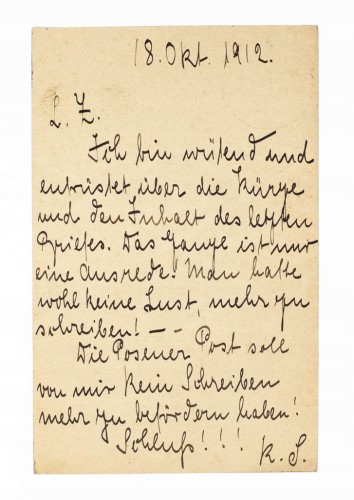 18. Okt. 1912.
L. Z.
Ich bin wütend und
entrüstet über die Kürze
und den Inhalt des letzten
Briefes. Das Ganze ist nur
eine Ausrede! Man hatte
wohl keine Lust, mehr zu
schreiben! – –
Die Posener Post soll
von mir kein Schreiben
mehr zu befördern haben!
Schluß!!!
K. S.